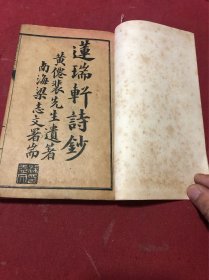 蓮瑞軒詩鈔
黃僊裴先生遺著
南海梁志文署耑